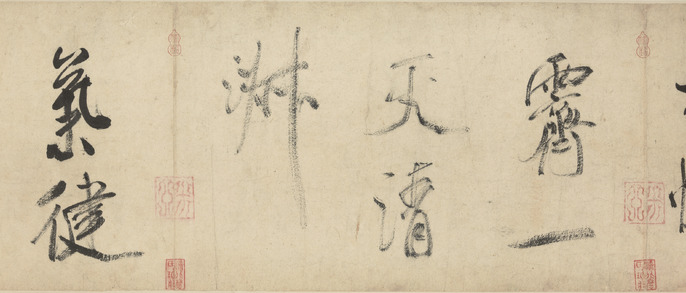 霽一
天清
淑
氣健